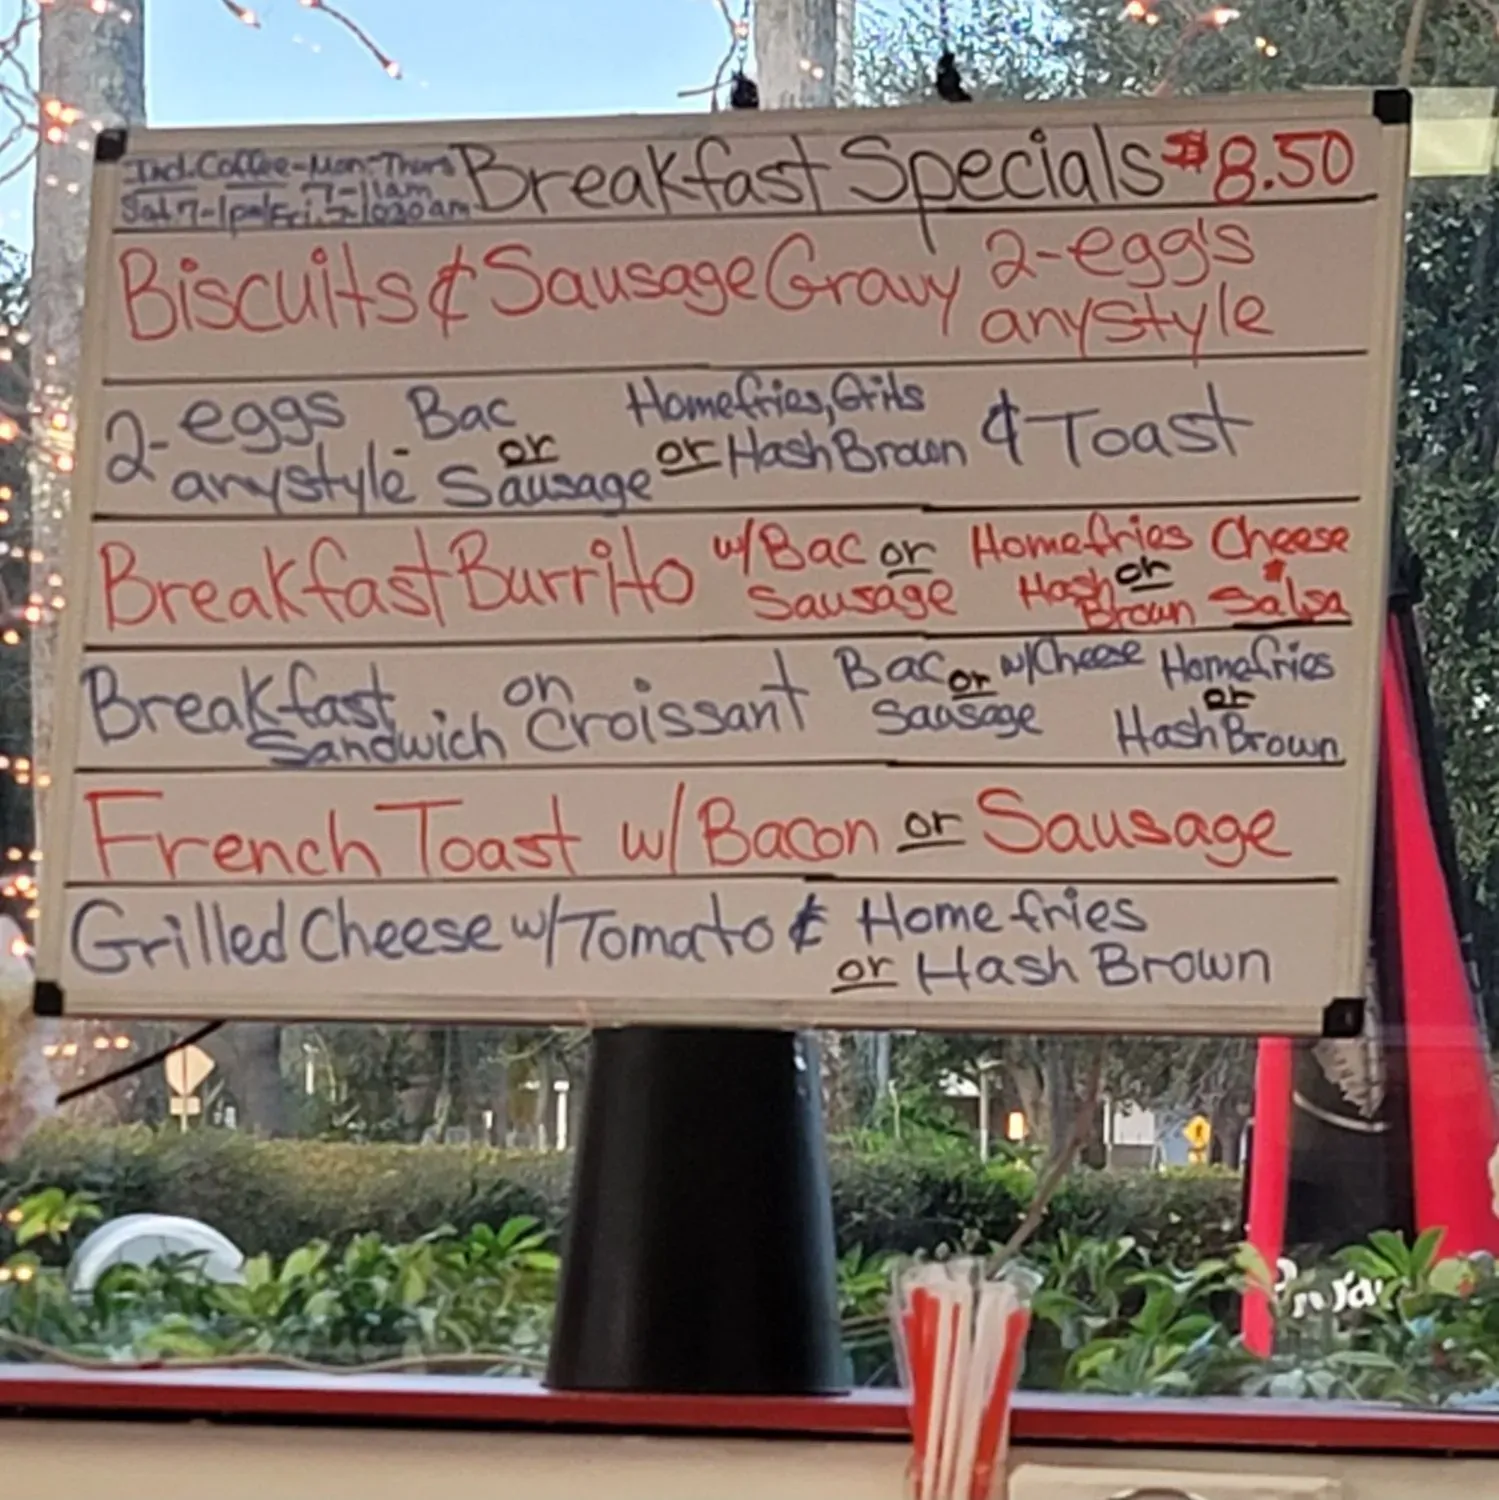 Incl. Coffee - Mon-Thurs 7-11am
Sat. 7-1pm/Fri. 7-1030am
Breakfast Specials $8.50
Biscuits & Sausage Gravy 2-egg's anystyle
2-eggs anystyle - Bac or Sausage Homefries, Grits or Hash Brown & Toast
Breakfast Burrito w/Bac or Sausage Homefries or Hash Brown Cheese & Salsa
Breakfast Sandwich on Croissant Bac or Sausage w/Cheese Homefries or Hash Brown
French Toast w/Bacon or Sausage
Grilled Cheese w/Tomato & Homefries
or Hash Brown